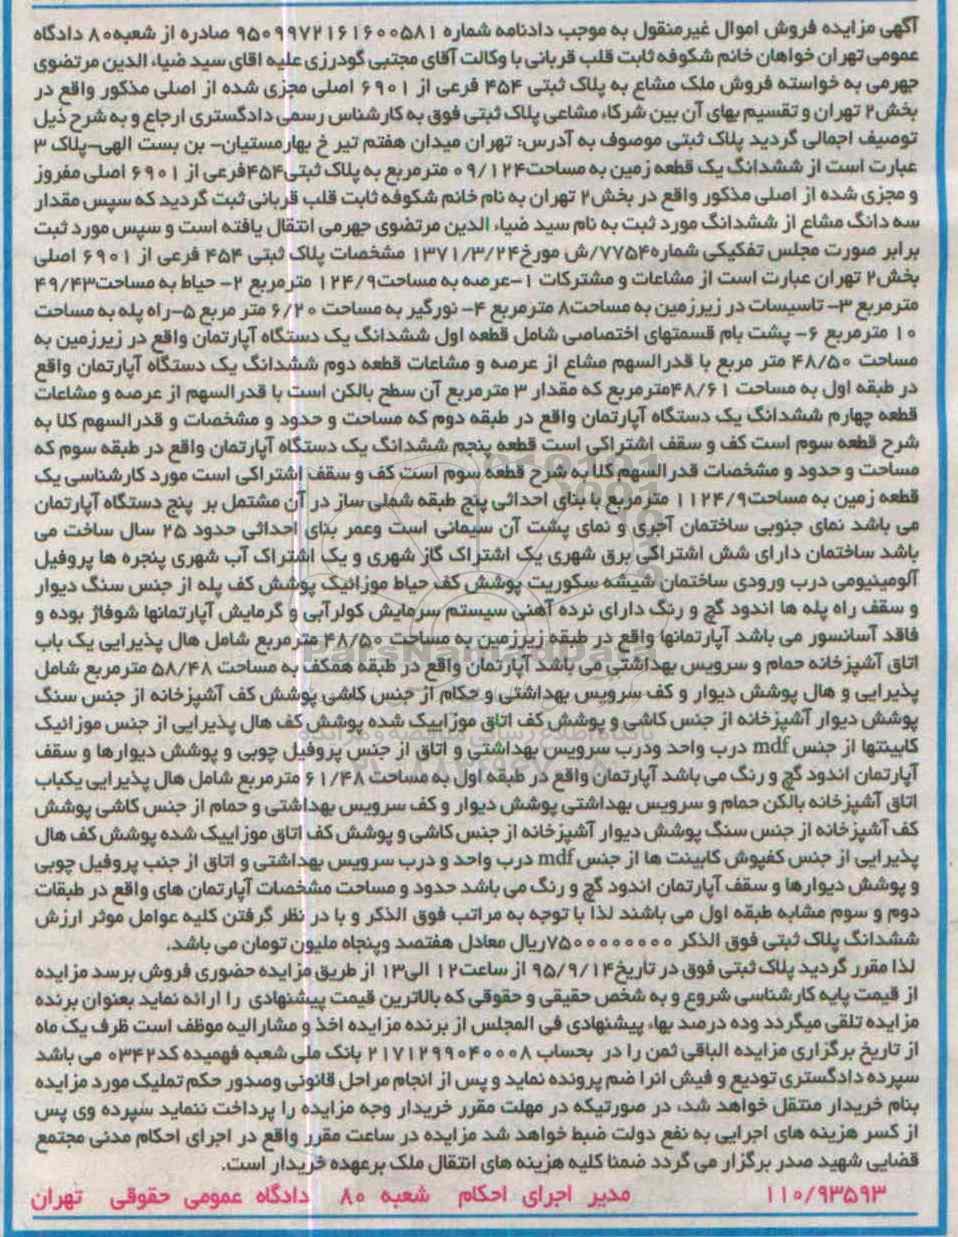 آگهی مزایده فروش اموال غیرمنقول به موجب دادنامه شماره ۹۵۰۹۹۷۲۱۶۱۶۰۰۵۸۱ صادره از شعبه۸۰ دادگاه
عمومی تهران خواهان خانم شکوفه ثابت قلب قربانی با وکالت آقای مجتبی گودرزی علیه اقای سید ضیاء الدین مرتضوی
جهرمی به خواسته فروش ملک مشاع به پلاک ثبتی ۴۵۴ فرعی از ۶۹۰۱ اصلی مجزی شده از اصلی مذکور واقع در
بخش۲ تهران و تقسیم بهای آن بین شرکاء مشاعی پلاک ثبتی فوق به کارشناس رسمی دادگستری ارجاع و به شرح ذیل
توصیف اجمالی گردید پلاک ثبتی موصوف به آدرس: تهران میدان هفتم تیر خ بهارمستیان- بن بست الهی-پلاک ۳
عبارت است از ششدانگ یک قطعه زمین به مساحت۰۹/۱۲۴ مترمربع به پلاک ثبتی۴۵۴فرعی از ۶۹۰۱ اصلی مفروز
و مجزی شده از اصلی مذکور واقع در بخش۲ تهران به نام خانم شکوفه ثابت قلب قربانی ثبت گردید که سپس مقدار
سه دانگ مشاع از ششدانگ مورد ثبت به نام سید ضیاء الدین مرتضوی جهرمی انتقال یافته است و سپس مورد ثبت
برابر صورت مجلس تفکیکی شماره۷۷۵۴/ش مورخ۱۳۷۱/۳/۲۴ مشخصات پلاک ثبتی ۴۵۴ فرعی از ۶۹۰۱ اصلی
بخش۲ تهران عبارت است از مشاعات و مشترکات ۱-عرصه به مساحت۱۲۴/۹ مترمربع ۲- حیاط به مساحت۴۹/۴۳
مترمربع ۳- تاسیسات در زیرزمین به مساحت۸ مترمربع ۴- نورگیر به مساحت ۶/۲۰ متر مربع ۵-راه پله به مساحت
۱۰ مترمربع ۶- پشت بام قسمتهای اختصاصی شامل قطعه اول ششدانگ یک دستگاه آپارتمان واقع در زیرزمین به
مساحت ۴۸/۵۰ متر مربع با قدرالسهم مشاع از عرصه و مشاعات قطعه دوم ششدانگ یک دستگاه آپارتمان واقع
در طبقه اول به مساحت ۴۸/۶۱مترمربع که مقدار ۳ مترمربع آن سطح بالکن است با قدرالسهم از عرصه و مشاعات
قطعه چهارم ششدانگ یک دستگاه آپارتمان واقع در طبقه دوم که مساحت و حدود و مشخصات و قدرالسهم کلا به
شرح قطعه سوم است کف و سقف اشتراکی است قطعه پنجم ششدانگ یک دستگاه آپارتمان واقع در طبقه سوم که
مساحت و حدود و مشخصات قدرالسهم کلا به شرح قطعه سوم است کف و سقف اشتراکی است مورد کارشناسی یک
قطعه زمین به مساحت۱۱۲۴/۹ مترمربع با بنای احداثی پنج طبقه شملی ساز در آن مشتمل بر پنج دستگاه آپارتمان
می باشد نمای جنوبی ساختمان آجری و نمای پشت آن سیمانی است وعمر بنای احداثی حدود ۲۵ سال ساخت می
باشد ساختمان دارای شش اشتراکی برق شهری یک اشتراک گاز شهری و یک اشتراک آب شهری پنجره ها پروفیل
آلومینیومی درب ورودی ساختمان شیشه سکوریت پوشش کف حیاط موزائیک پوشش کف پله از جنس سنگ دیوار
و سقف راه پله ها اندود گچ و رنگ دارای نرده آهنی سیستم سرمایش کولرآبی و گرمایش آپارتمانها شوفاژ بوده و
فاقد آسانسور می باشد آپارتمانها واقع در طبقه زیرزمین به مساحت ۴۸/۵۰ مترمربع شامل هال پذیرایی یک باب
اتاق آشپزخانه حمام و سرویس بهداشتی می باشد آپارتمان واقع در طبقه همکف به مساحت ۵۸/۴۸ مترمربع شامل
پذیرایی و هال پوشش دیوار و کف سرویس بهداشتی و حکام از جنس کاشی پوشش کف آشپزخانه از جنس سنگ
پوشش دیوار آشپزخانه از جنس کاشی و پوشش کف اتاق موزاییک شده پوشش کف هال پذیرایی از جنس موزائیک
کابینتها از جنس mdf درب واحد ودرب سرویس بهداشتی و اتاق از جنس پروفیل چوبی و پوشش دیوارها و سقف
آپارتمان اندود گچ و رنگ می باشد آپارتمان واقع در طبقه اول به مساحت ۶۱/۴۸ مترمربع شامل هال پذیرایی یکباب
اتاق آشپزخانه بالکن حمام و سرویس بهداشتی پوشش دیوار و کف سرویس بهداشتی و حمام از جنس کاشی پوشش
کف آشپزخانه از جنس سنگ پوشش دیوار آشپزخانه از جنس کاشی و پوشش کف اتاق موزاییک شده پوشش کف هال
پذیرایی از جنس کفپوش کابینت ها از جنس mdf درب واحد و درب سرویس بهداشتی و اتاق از جنب پروفیل چوبی
و پوشش دیوارها و سقف آپارتمان اندود گچ و رنگ می باشد حدود و مساحت مشخصات آپارتمان های واقع در طبقات
دوم و سوم مشابه طبقه اول می باشند لذا با توجه به مراتب فوق الذکر و با در نظر گرفتن کلیه عوامل موثر ارزش
ششدانگ پلاک ثبتی فوق الذکر ۷۵۰۰۰۰۰۰۰۰۰ریال معادل هفتصد وپنجاه ملیون تومان می باشد.
لذا مقرر گردید پلاک ثبتی فوق در تاریخ۹۵/۹/۱۴ از ساعت۱۲ الی۱۳ از طریق مزایده حضوری فروش برسد مزایده
از قیمت پایه کارشناسی شروع و به شخص حقیقی و حقوقی که بالاترین قیمت پیشنهادی را ارائه نماید بعنوان برنده
مزایده تلقی میگردد وده درصد بهاء پیشنهادی فی المجلس از برنده مزایده اخذ و مشارالیه موظف است ظرف یک ماه
از تاریخ برگزاری مزایده الباقی ثمن را در بحساب ۲۱۷۱۲۹۹۰۴۰۰۰۸ بانک ملی شعبه فهمیده کد۰۳۴۲ می باشد
سپرده دادگستری تودیع و فیش انرا ضم پرونده نماید و پس از انجام مراحل قانونی وصدور حکم تملیک مورد مزایده
بنام خریدار منتقل خواهد شد، در صورتیکه در مهلت مقرر خریدار وجه مزایده را پرداخت ننماید سپرده وی پس
از کسر هزینه های اجرایی به نفع دولت ضبط خواهد شد مزایده در ساعت مقرر واقع در اجرای احکام مدنی مجتمع
قضایی شهید صدر برگزار می گردد ضمنا کلیه هزینه های انتقال ملک برعهده خریدار است.
۱۱۰/۹۳۵۹۳ مدیر اجرای احکام شعبه ۸۰ دادگاه عمومی حقوقی تهران